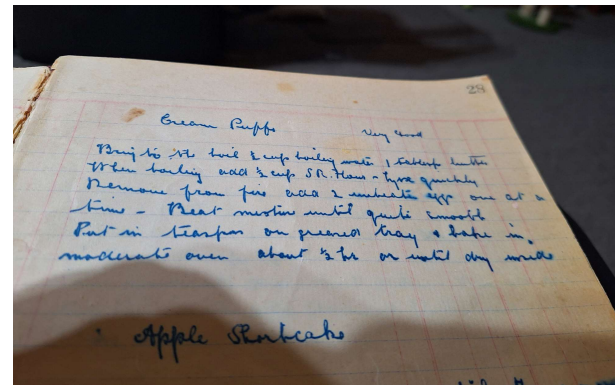 28
Cream Puffs Very Good
Bring to the boil ½ cup boiling water, 1 tablesp butter
When boiling add ½ cup S.R. Flour - quickly
Remove from fire add 2 unbeaten eggs one at a
time - Beat mixture until quite smooth
Put in teaspns on greased tray & bake in
moderate oven about ½ hr or until dry inside
Apple Shortcake